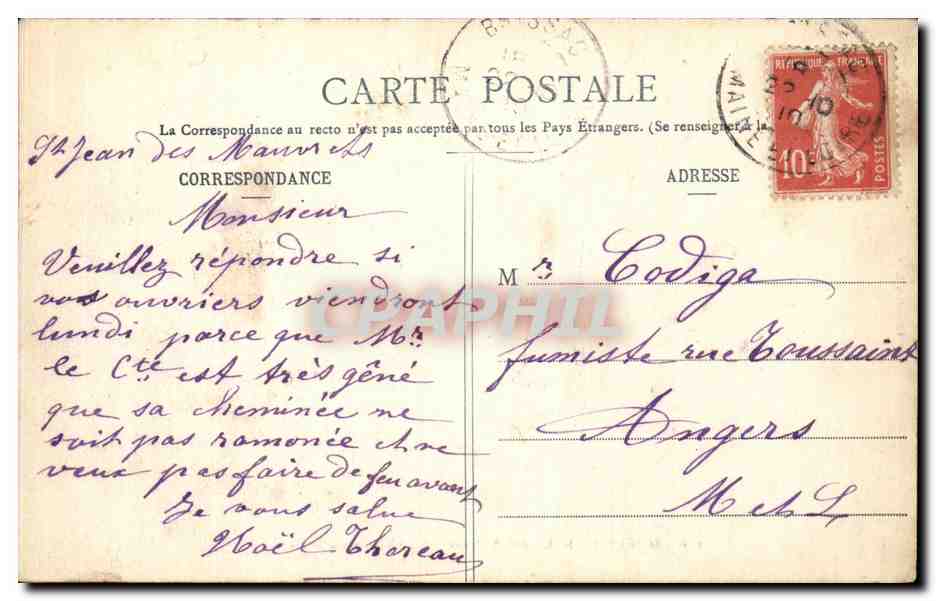 CARTE POSTALE
La Correspondance au recto n'est pas acceptée par tous les Pays Étrangers. (Se renseigner à la
St Jean des Mauvrets
CORRESPONDANCE
Monsieur
Veuillez répondre si
vos ouvriers viendront
lundi parce que Mr
le Cte est très gêné
que sa cheminée ne
soit pas ramonée et ne
veux pas faire de feu avant
Je vous salue
Noël Thoreau
ADRESSE
Mr Codiga
fumiste rue Toussaint
Angers
M et L
BRISSAC
RÉPUBLIQUE FRANÇAISE
10c
POSTES
MAINE ET LOIRE
10
CPAPHIL